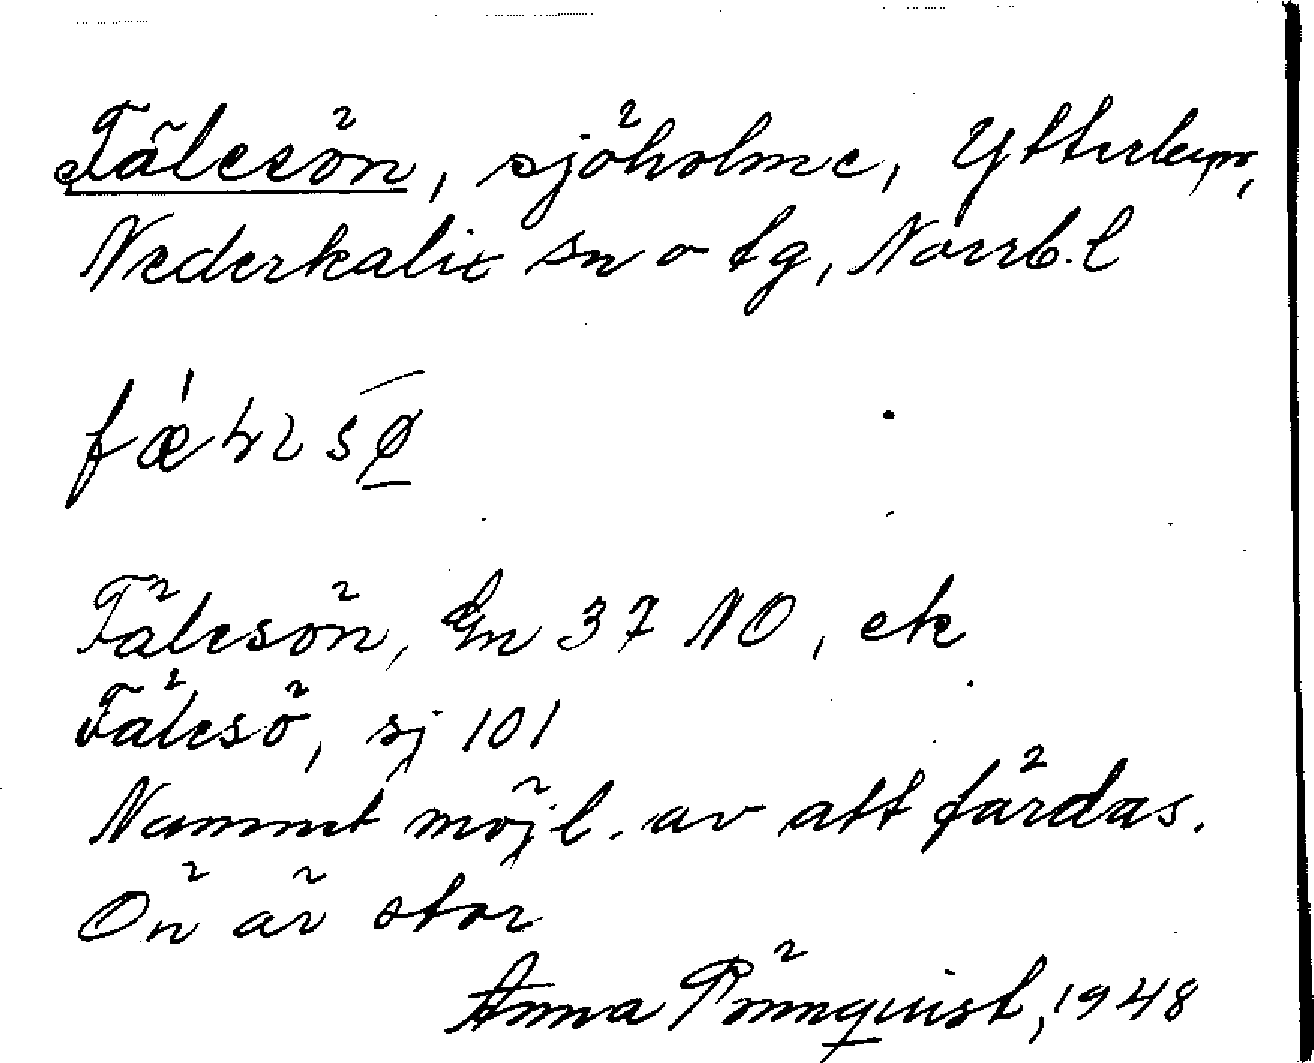 Fälesön, sjöholme, Ytterbyn,
Nederkalix sn o tg, Norrb. l
Fälesön, Gn 37 NO, ek
Fälesö, sj 101
Namnet möjl. av att färdas.
Ön är stor
Anna Rönnquist, 1948